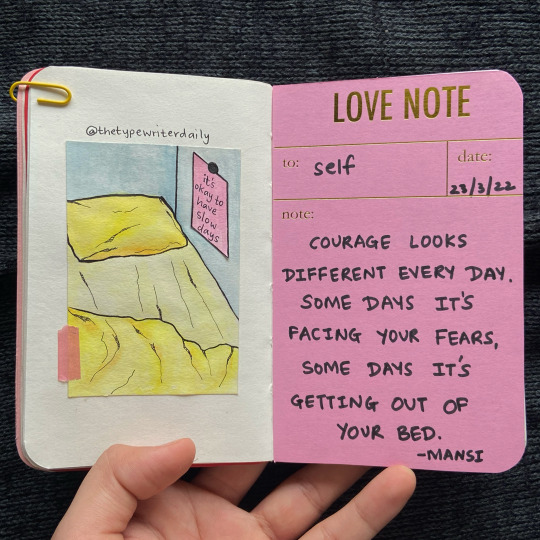 @thetypewriterdaily
it's
okay to
have
slow
days
LOVE NOTE
to: self
date:
23/3/22
note:
COURAGE LOOKS
DIFFERENT EVERY DAY.
SOME DAYS IT'S
FACING YOUR FEARS,
SOME DAYS IT'S
GETTING OUT OF
YOUR BED.
-MANSI